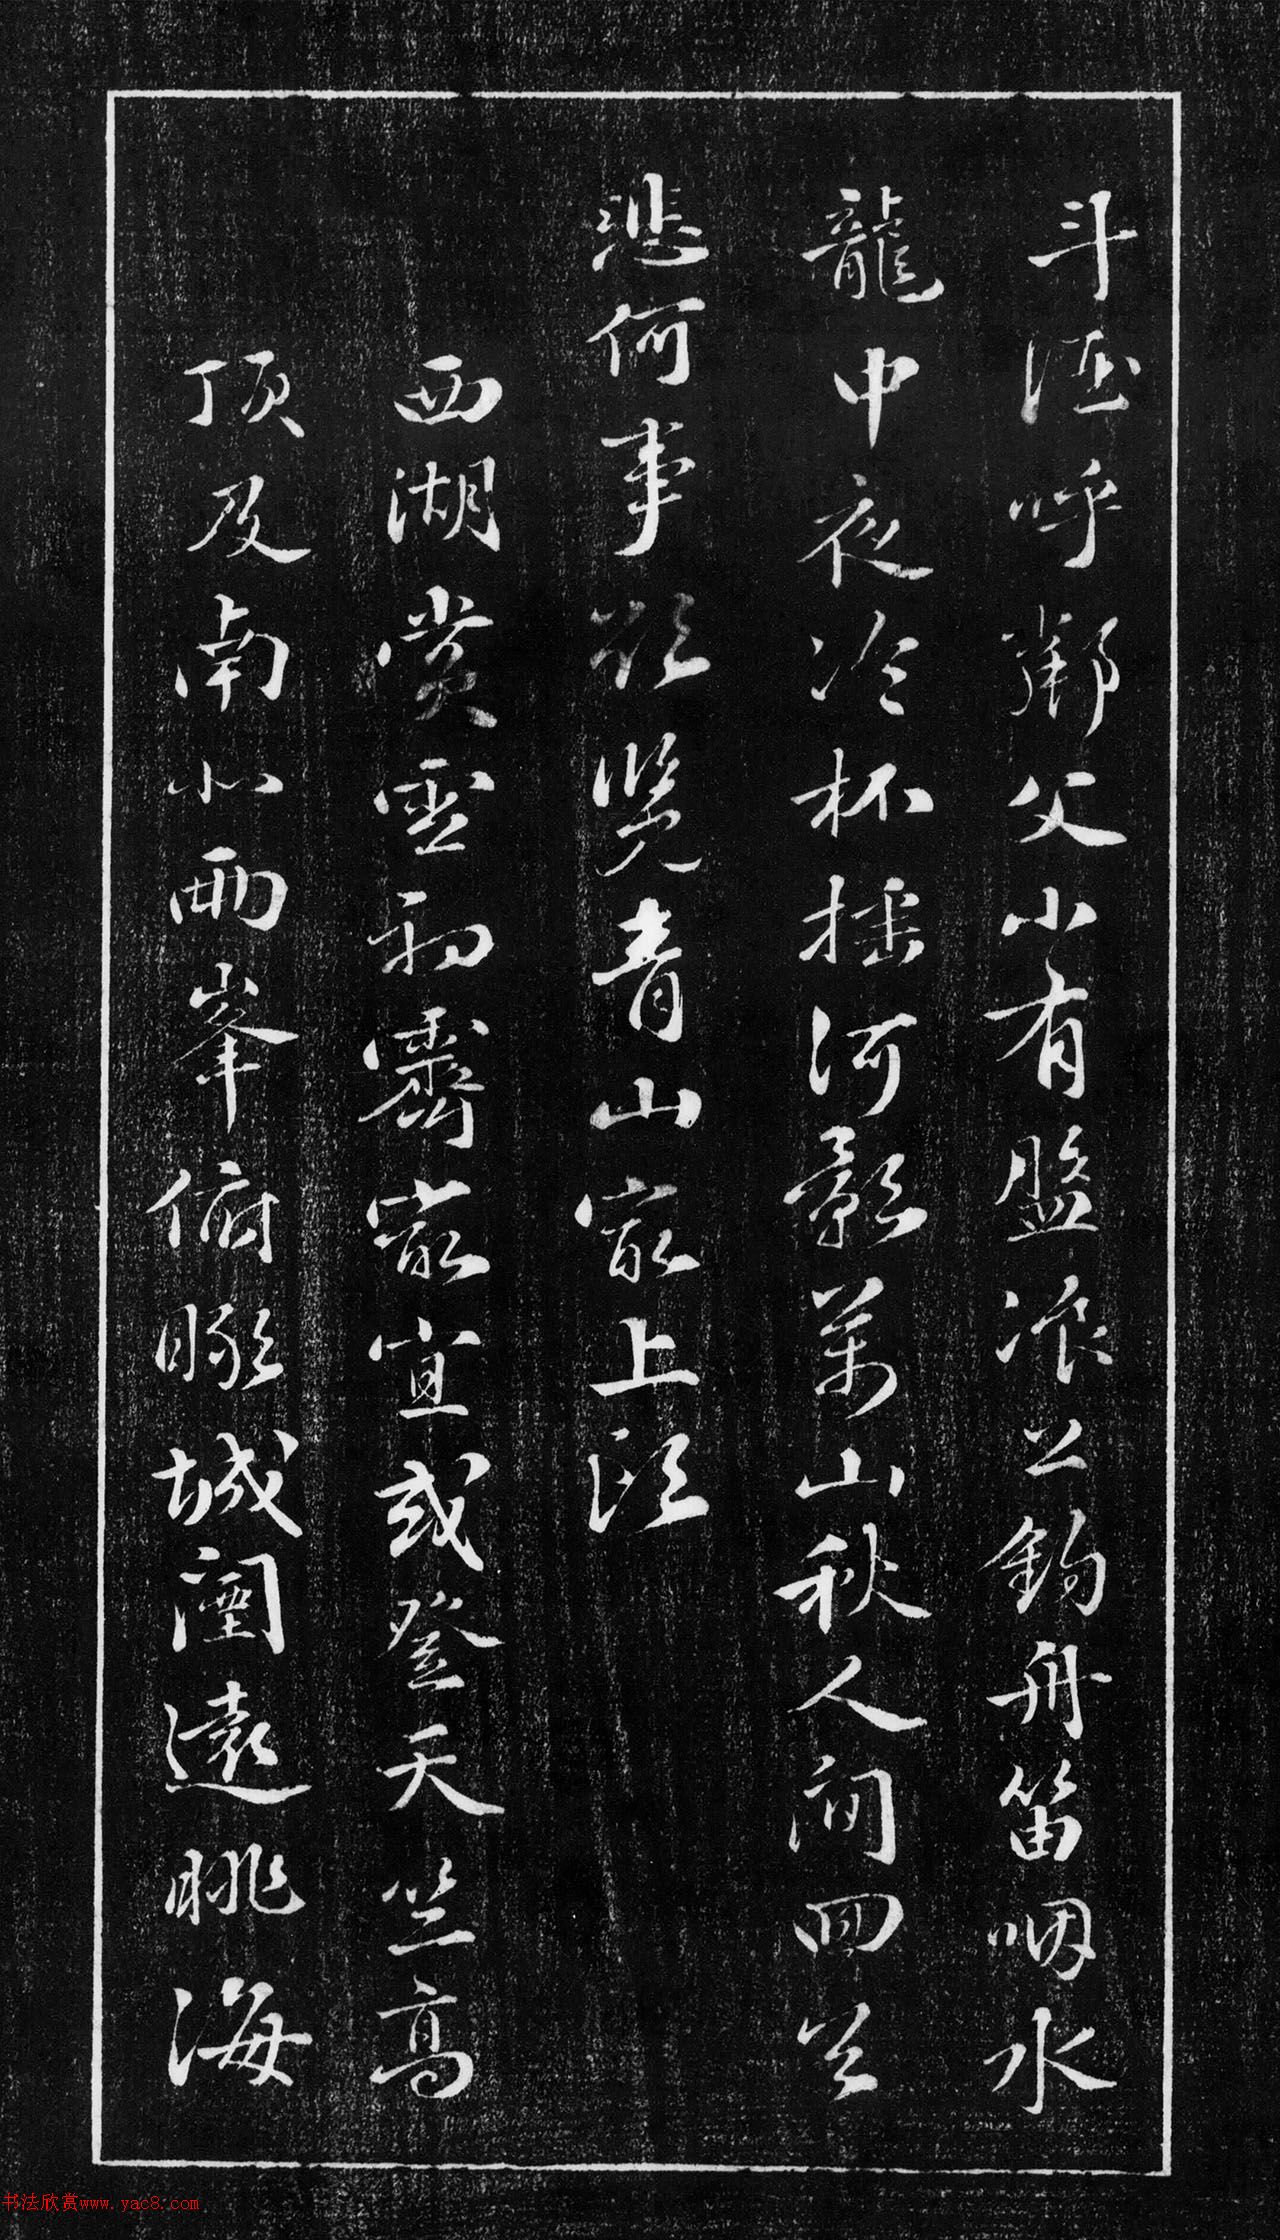 斗酒呼鄰父小有盤飡上釣舟笛咽水
龍中夜冷杯搖河影萬山秋人間回首
悲何事欲覽青山最上頭
西湖賞雪初霽最宜或登天竺高
頂及南北兩峯俯瞰城闉遠眺海
书法欣赏www.yac8.com